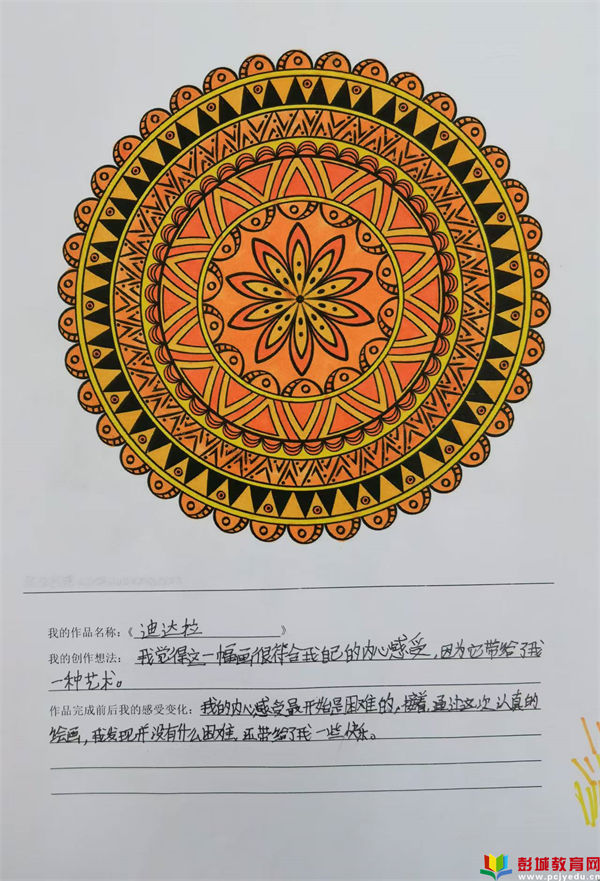 我的作品名称：《 迪达拉 》
我的创作想法： 我觉得这一幅画很符合我自己的内心感受，因为它带给了我
一种艺术。
作品完成前后我的感受变化：我的内心感受最开始是困难的，接着，通过这次认真的
绘画，我发现并没有什么困难，还带给了我一些快乐。
彭城教育网
www.pcjyedu.cn